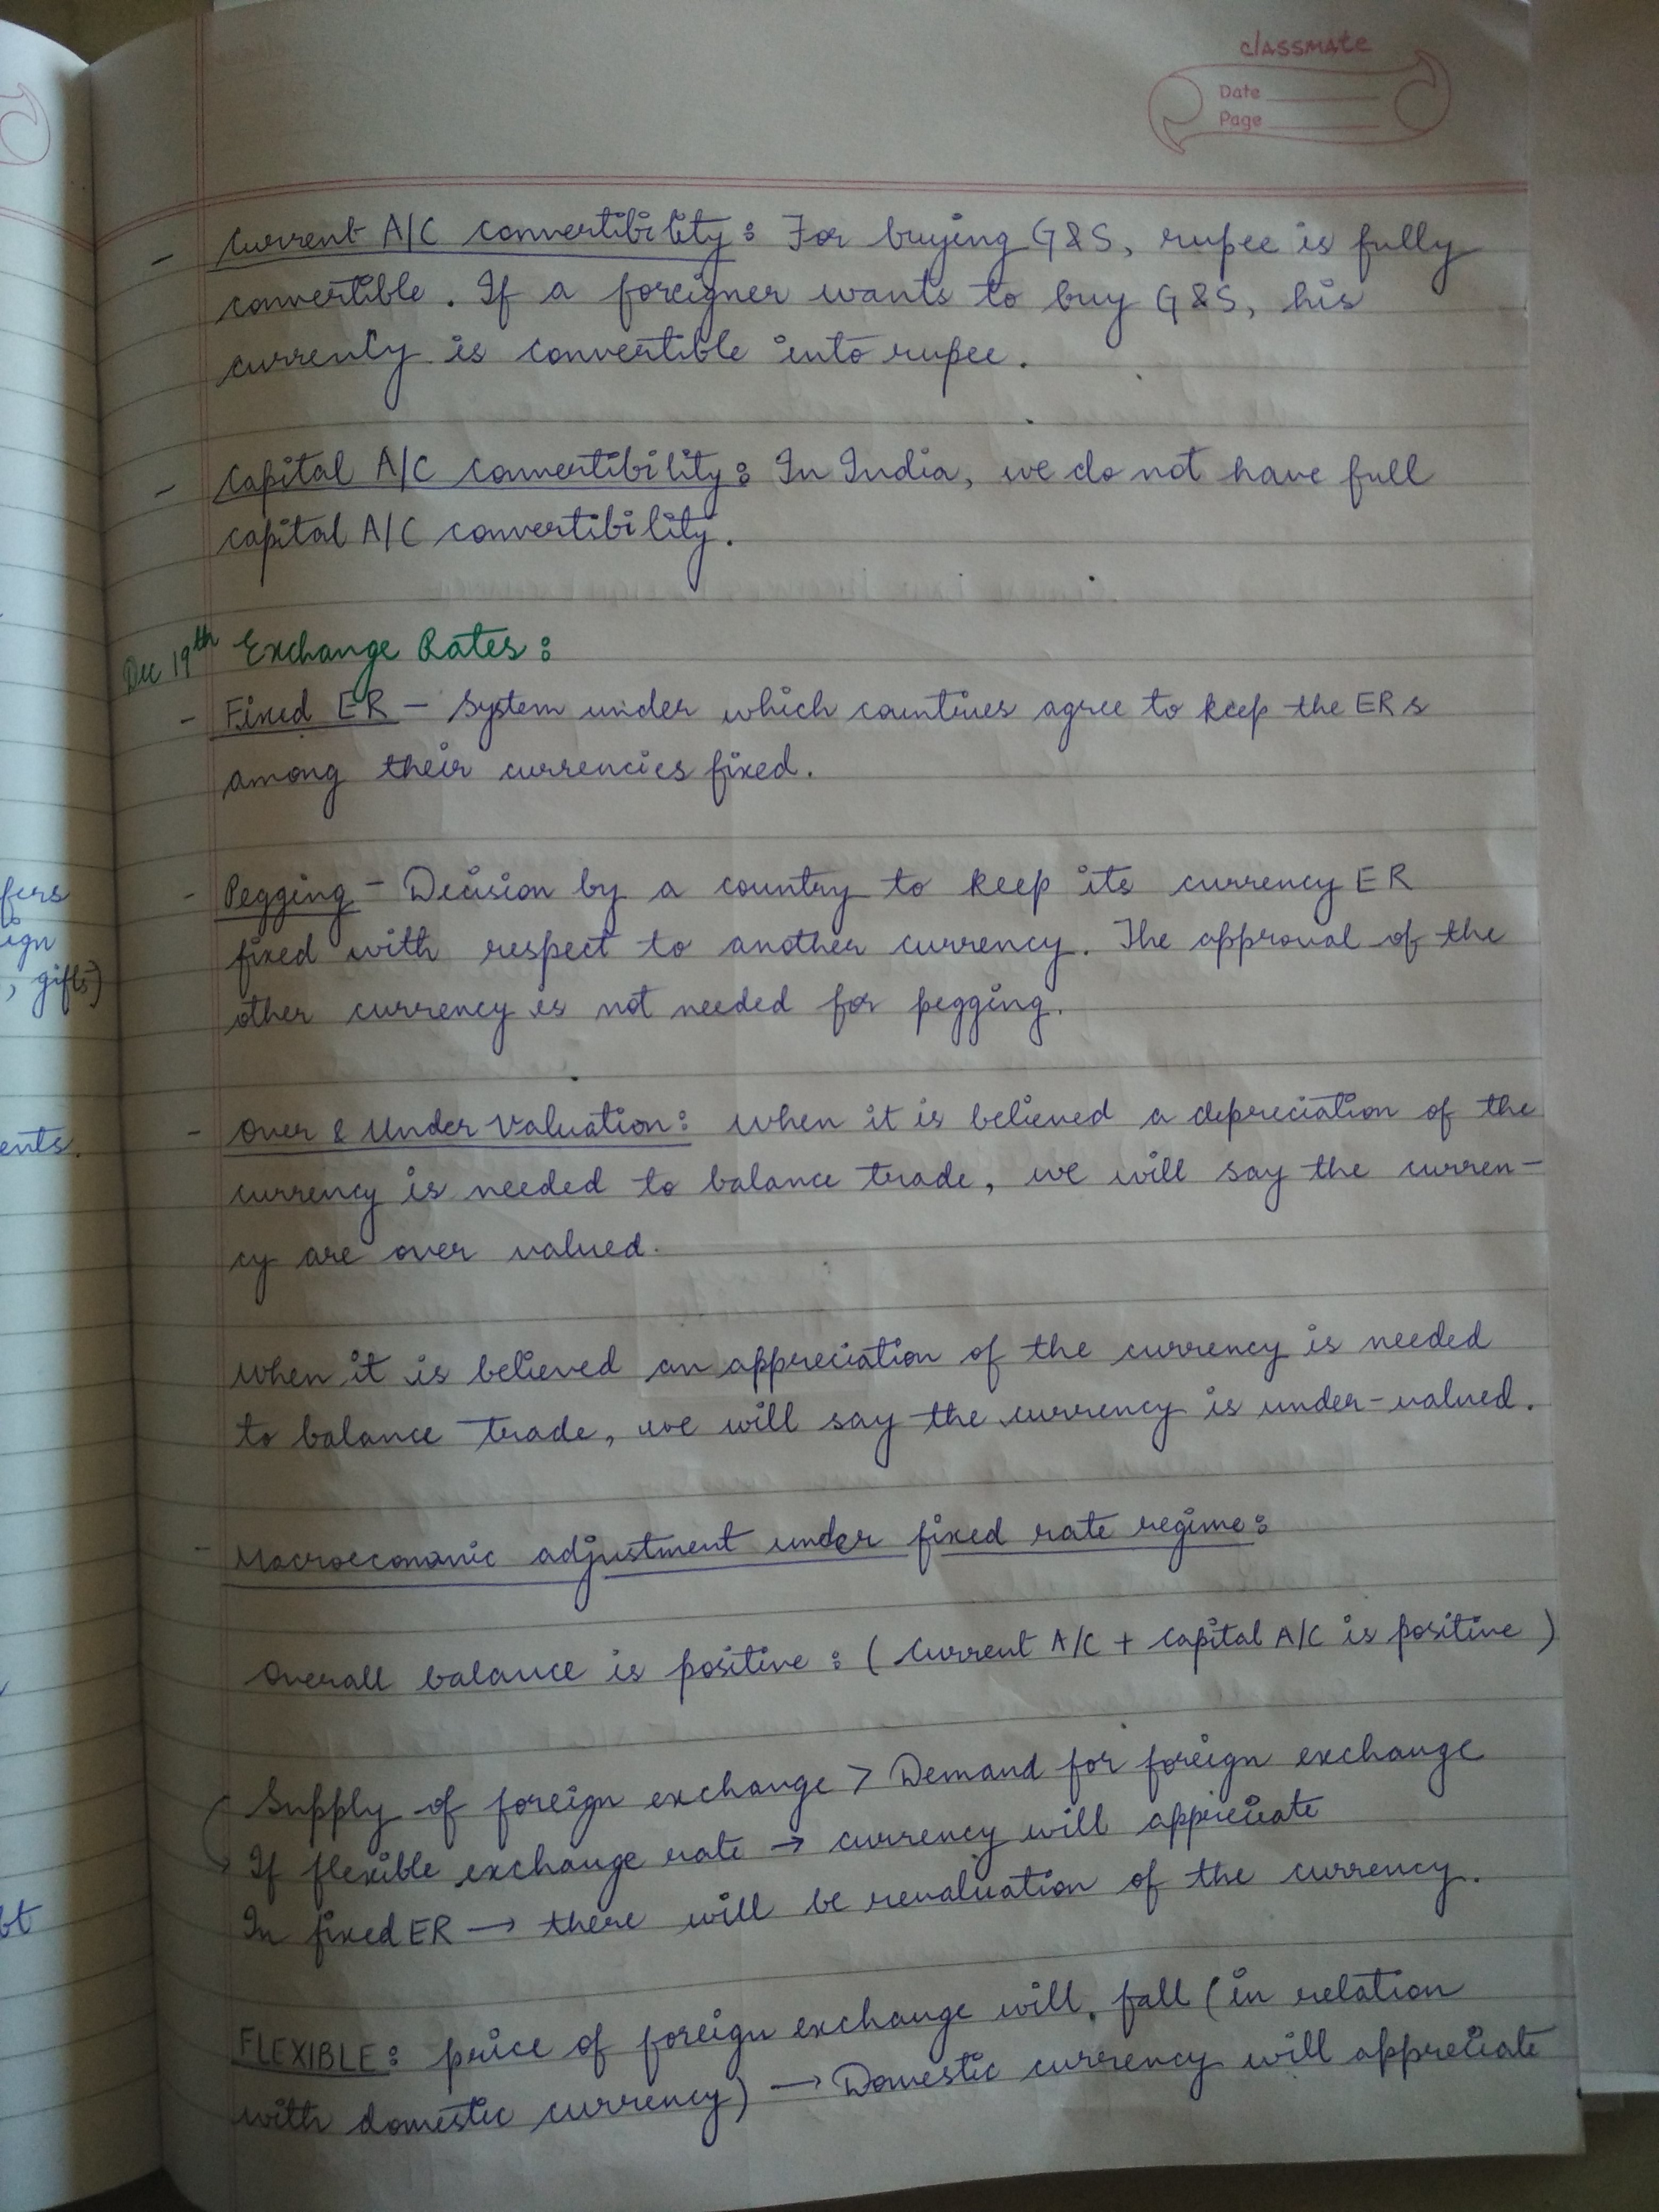 classmate
Date
Page
- Current A/C convertibility: For buying G&S, rupee is fully
convertible. If a foreigner wants to buy G&S, his
currency is convertible into rupee.
- Capital A/C convertibility: In India, we do not have full
capital A/C convertibility.
Dec 19th Exchange Rates:
- Fixed ER - System under which countries agree to keep the ERs
among their currencies fixed.
- Pegging - Decision by a country to keep its currency ER
fixed with respect to another currency. The approval of the
other currency is not needed for pegging.
- Over & Under Valuation: When it is believed a depreciation of the
currency is needed to balance trade, we will say the curren-
cy are over valued.
When it is believed an appreciation of the currency is needed
to balance trade, we will say the currency is under-valued.
- Macroeconomic adjustment under fixed rate regime:
Overall balance is positive: (Current A/C + Capital A/C is positive)
Supply of foreign exchange > Demand for foreign exchange
→ If flexible exchange rate → currency will appreciate
In fixed ER → there will be revaluation of the currency.
FLEXIBLE: price of foreign exchange will fall (in relation
with domestic currency) → Domestic currency will appreciate
fers
ign
, gifts)
ents.
bt